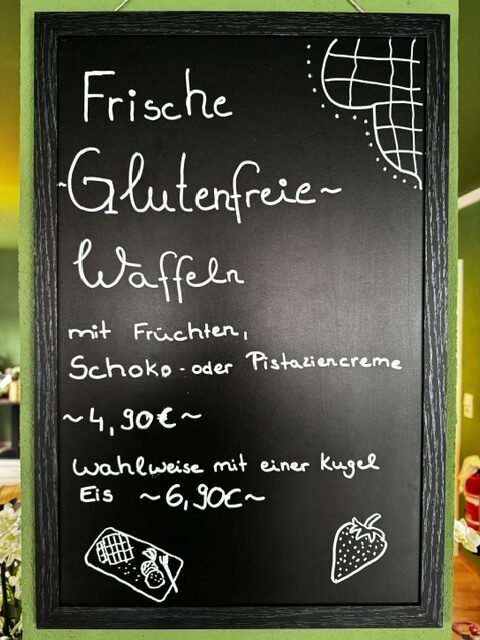 Frische
~Glutenfreie~
Waffeln
mit Früchten,
Schoko-oder Pistaziencreme
~4,90€~
Wahlweise mit einer Kugel
Eis ~6,90€~